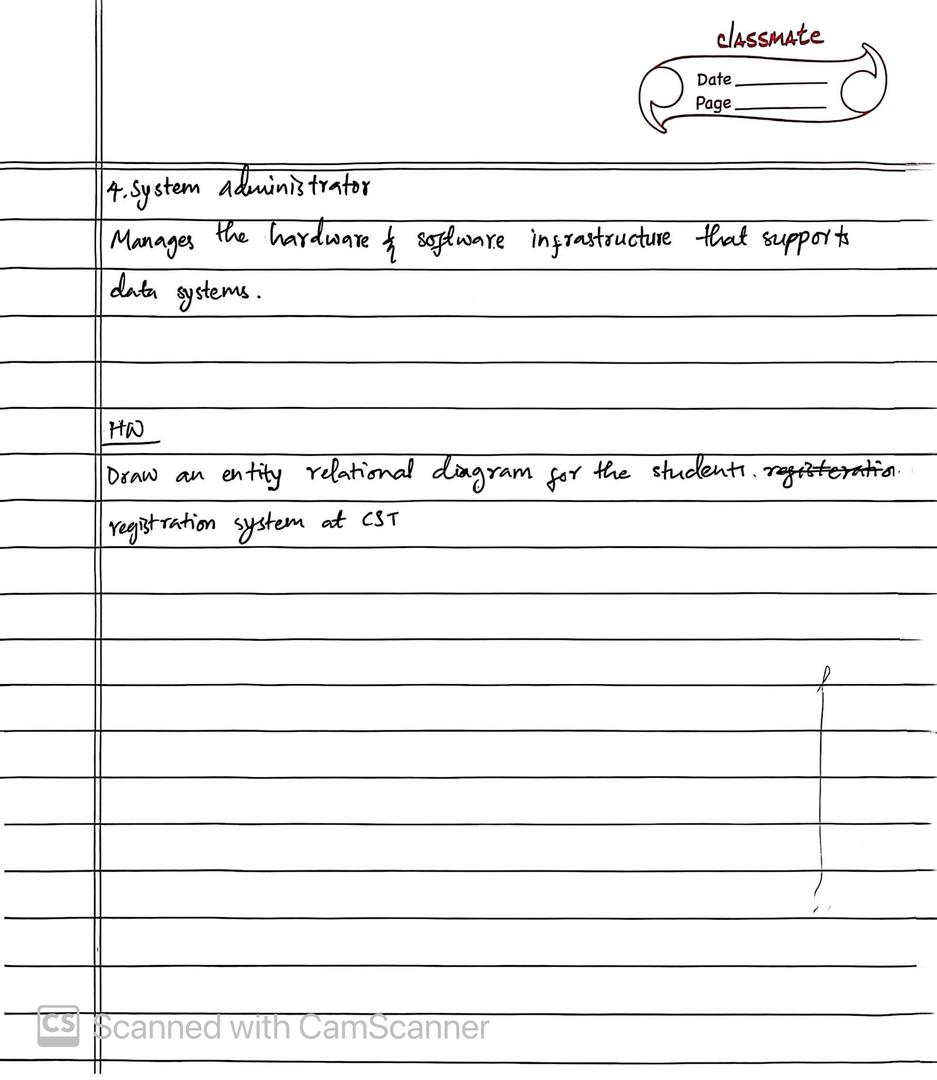 classmate
Date
Page
4. System administrator
Manages the hardware & software infrastructure that supports
data systems.
HW
Draw an entity relational diagram for the students. registeration
registration system at CST
CS Scanned with CamScanner